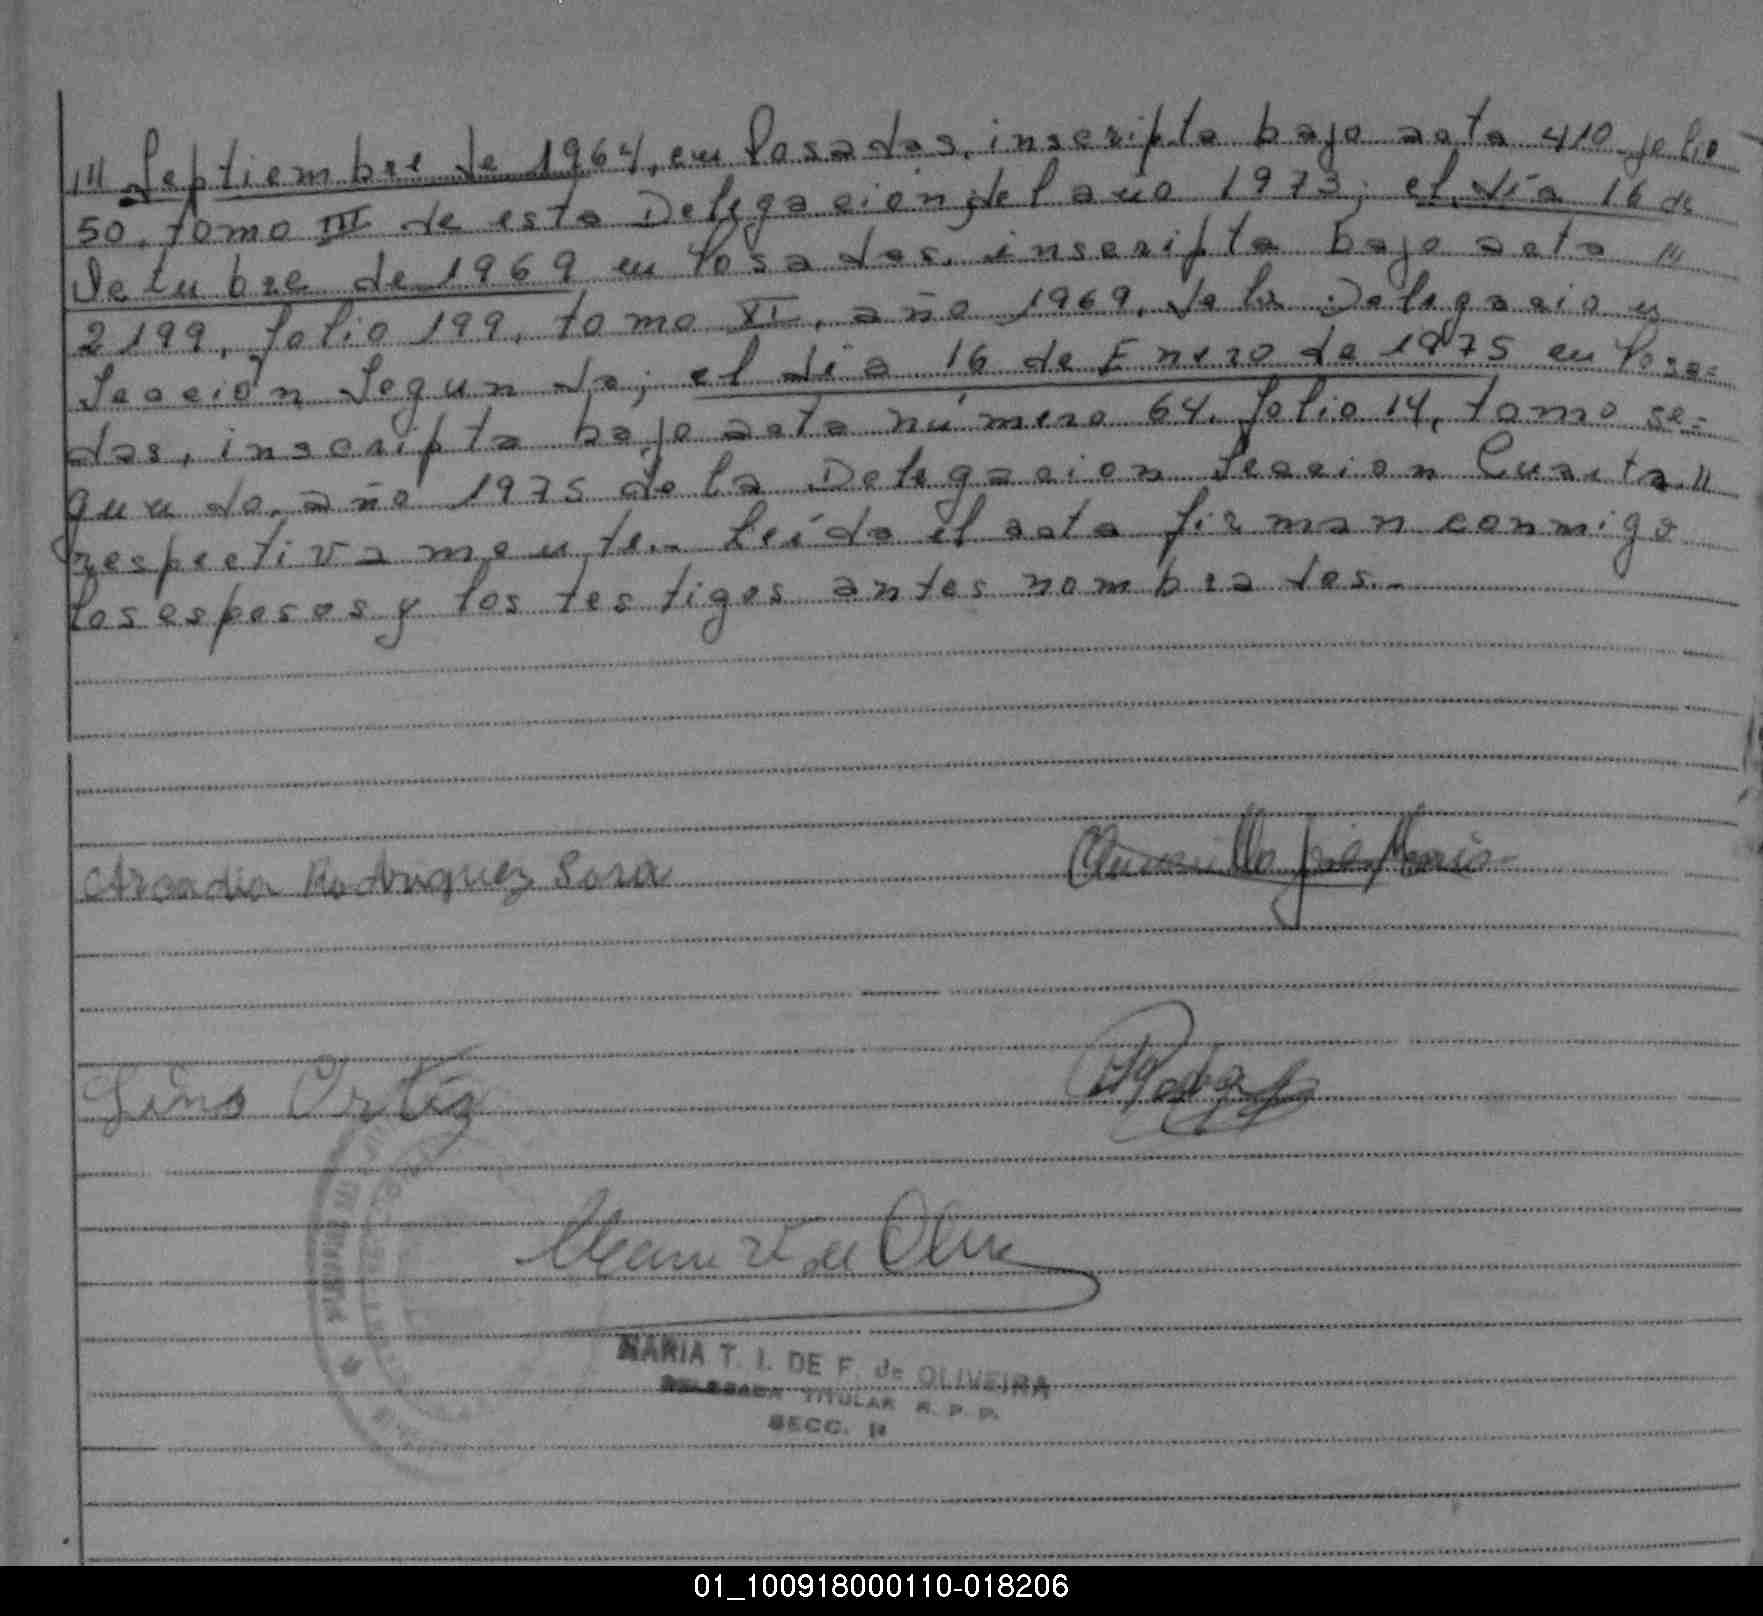 /// Septiembre de 1964, en Posadas, inscripta bajo acta 410 folio
50, tomo III de esta Delegación, del año 1973; el día 16 de
Octubre de 1969 en Posadas, inscripta bajo acta //
2199, folio 199, tomo XI, año 1969, de la Delegacion
Sección Segunda; el día 16 de Enero de 1975 en Posa=
das, inscripta bajo acta número 64, folio 14, tomo se=
gundo, año 1975 de la Delegacion Seccion Cuarta.//
respectivamente.- Leída el acta firman conmigo
los esposos y los testigos antes nombrados.-
Arcadia Rodriguez Sosa
Lino Ortiz
MARIA T. I. DE F. de OLIVEIRA
DELEGADA TITULAR R. P. P.
SECC.
01_100918000110-018206